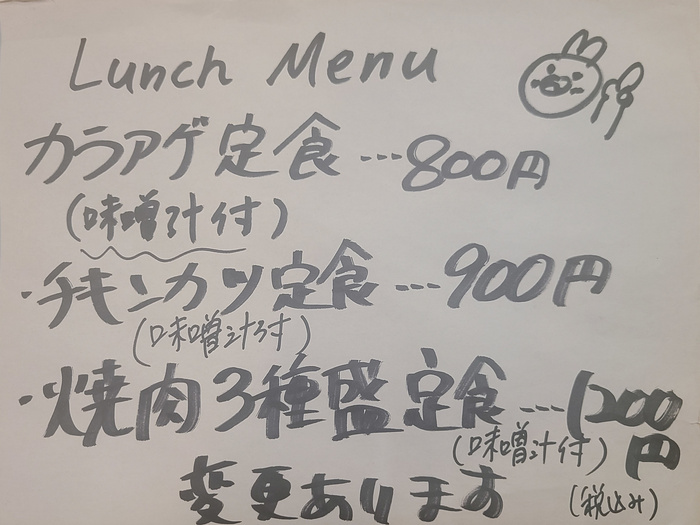 Lunch Menu
カラアゲ定食…800円
(味噌汁付)
・チキンカツ定食…900円
(味噌汁付)
・焼肉3種盛定食…1200円
(味噌汁付)
変更あります
(税込み)